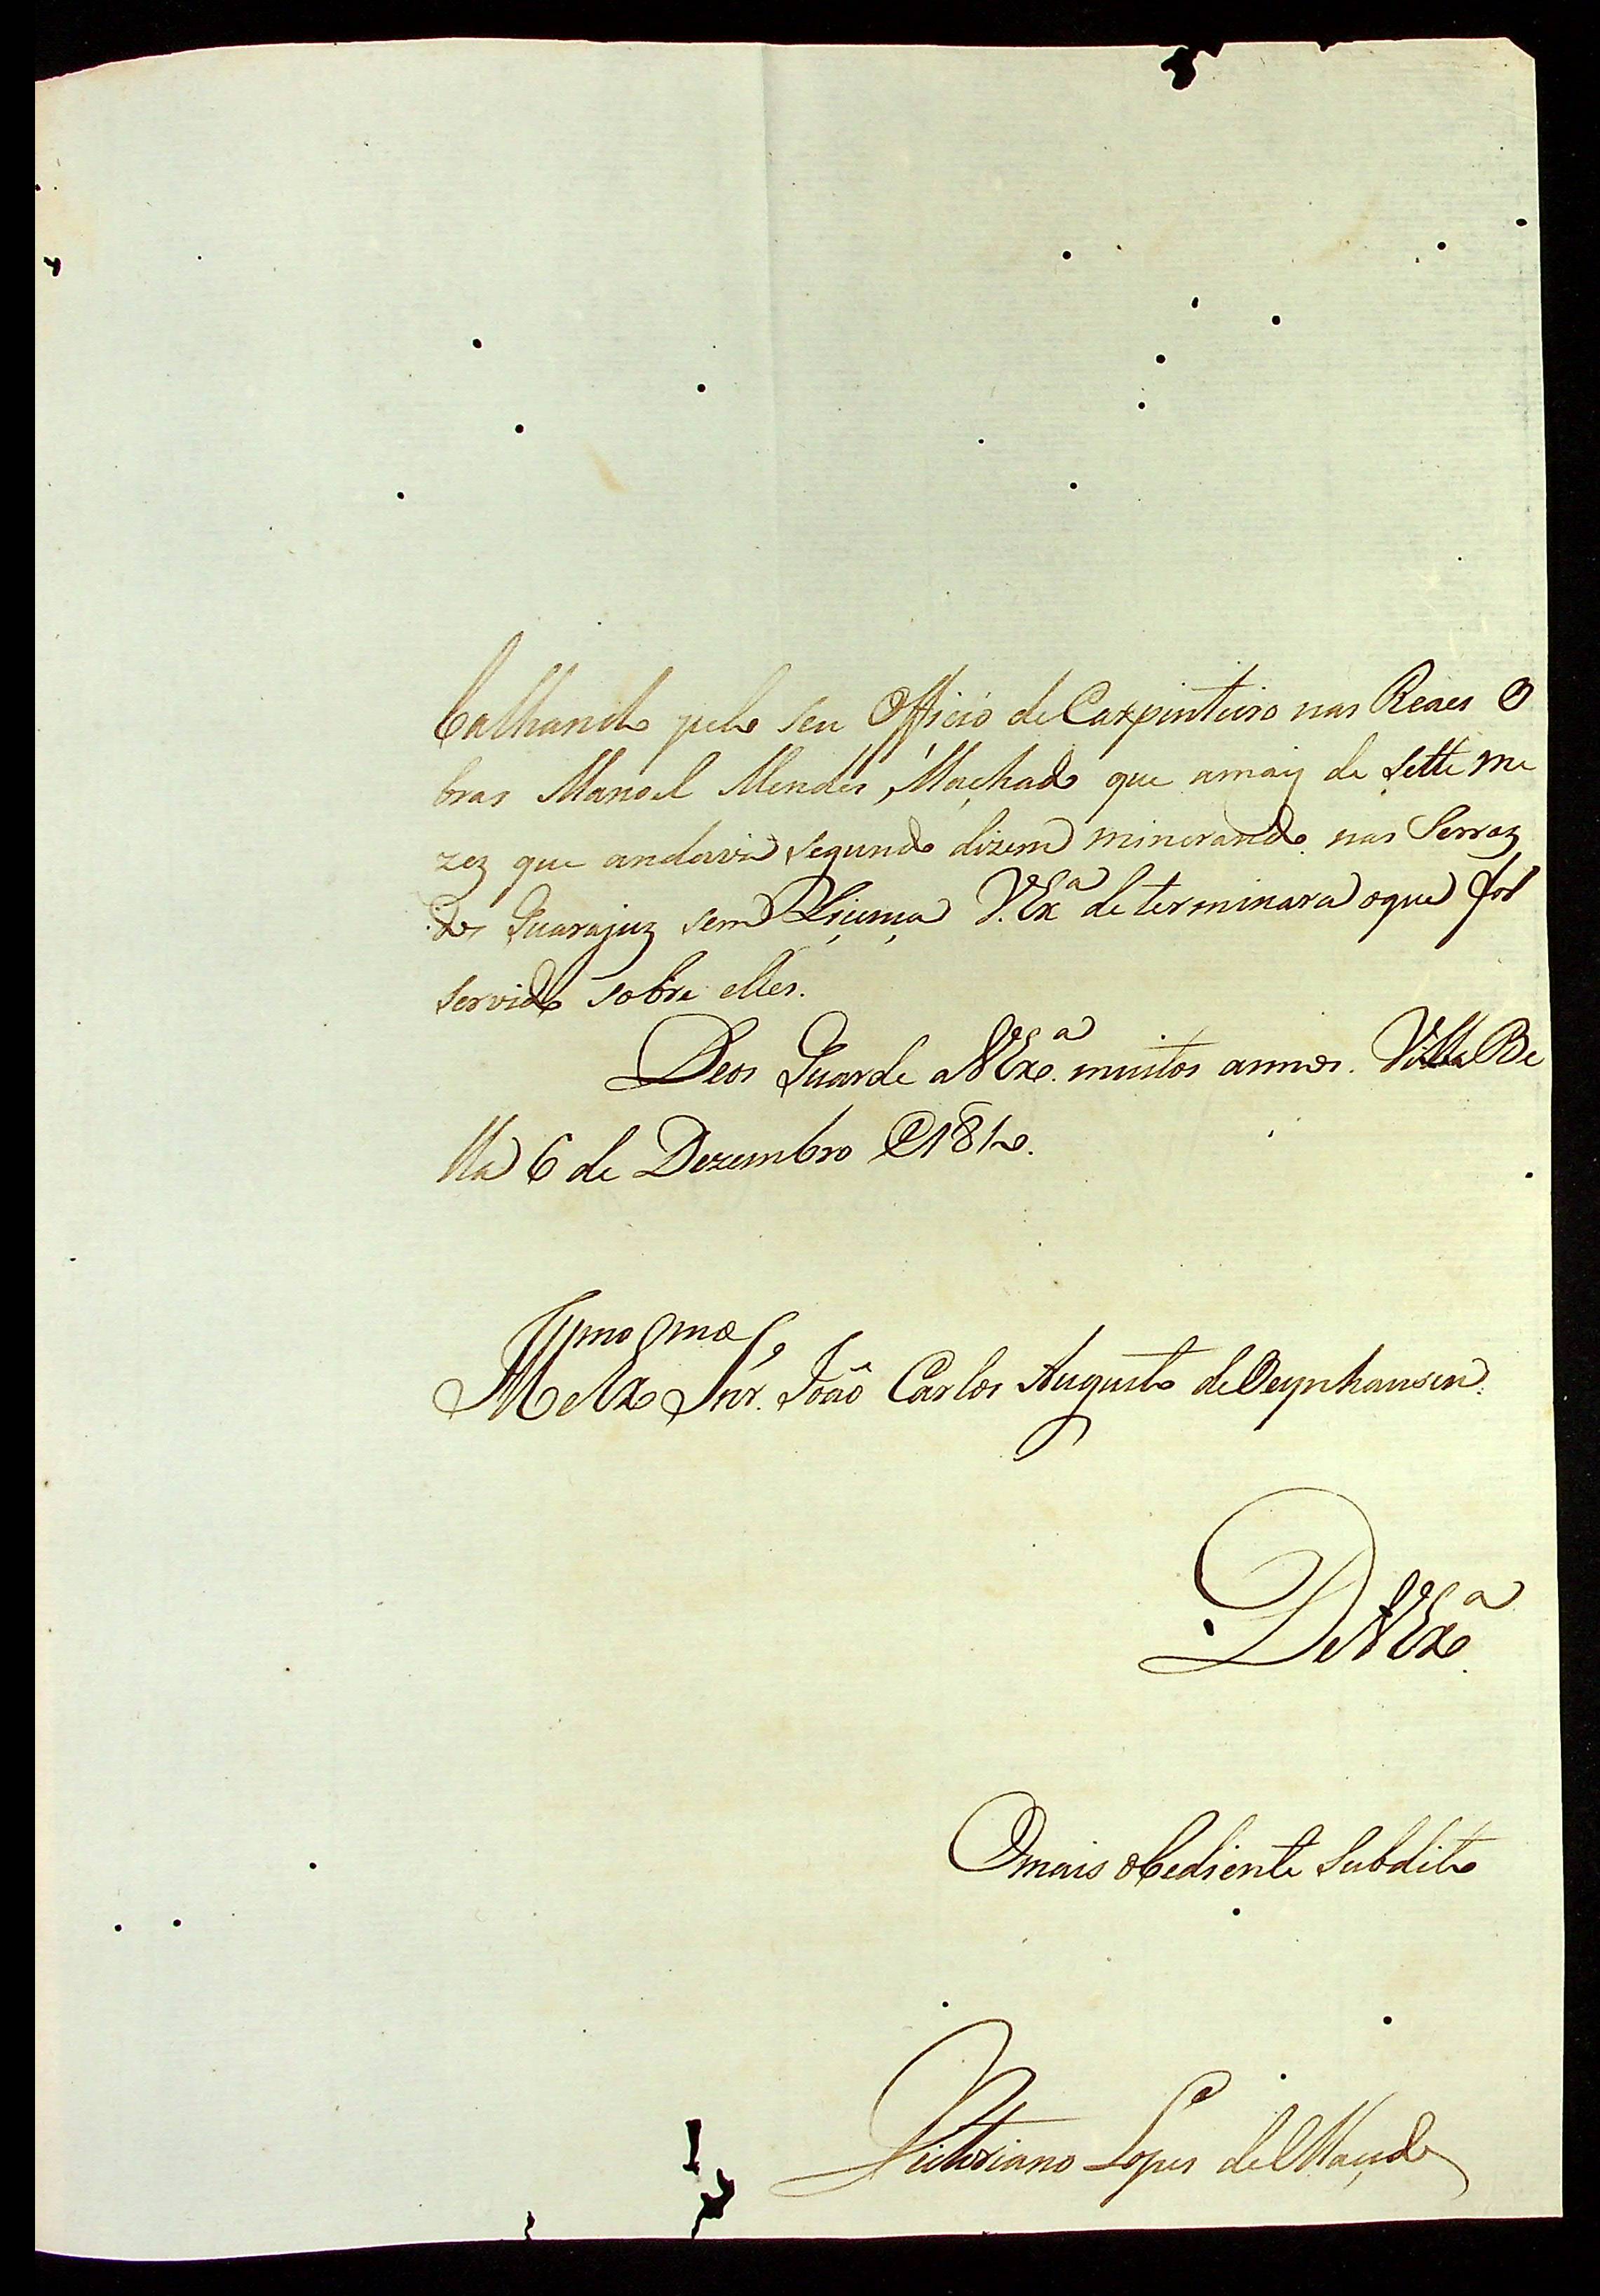 balhando pelo seu Officio de Carpinteiro nas Reaes O
bras Manoel Mendes Machado que amaiz de sette me
zez que andava segundo dizem minerando nas Serraz
dos Guarajuz sem V. Exª determinara oque for
servido sobre elles.
Deos Guarde a V Exª muitos annos. Villa Be
lla 6 de Dezembro
Illmo e Exmo Snr. João Carlos Augusto de Oeynhausen
De V Exª
O mais obediente Subdito
Victoriano Lopes de